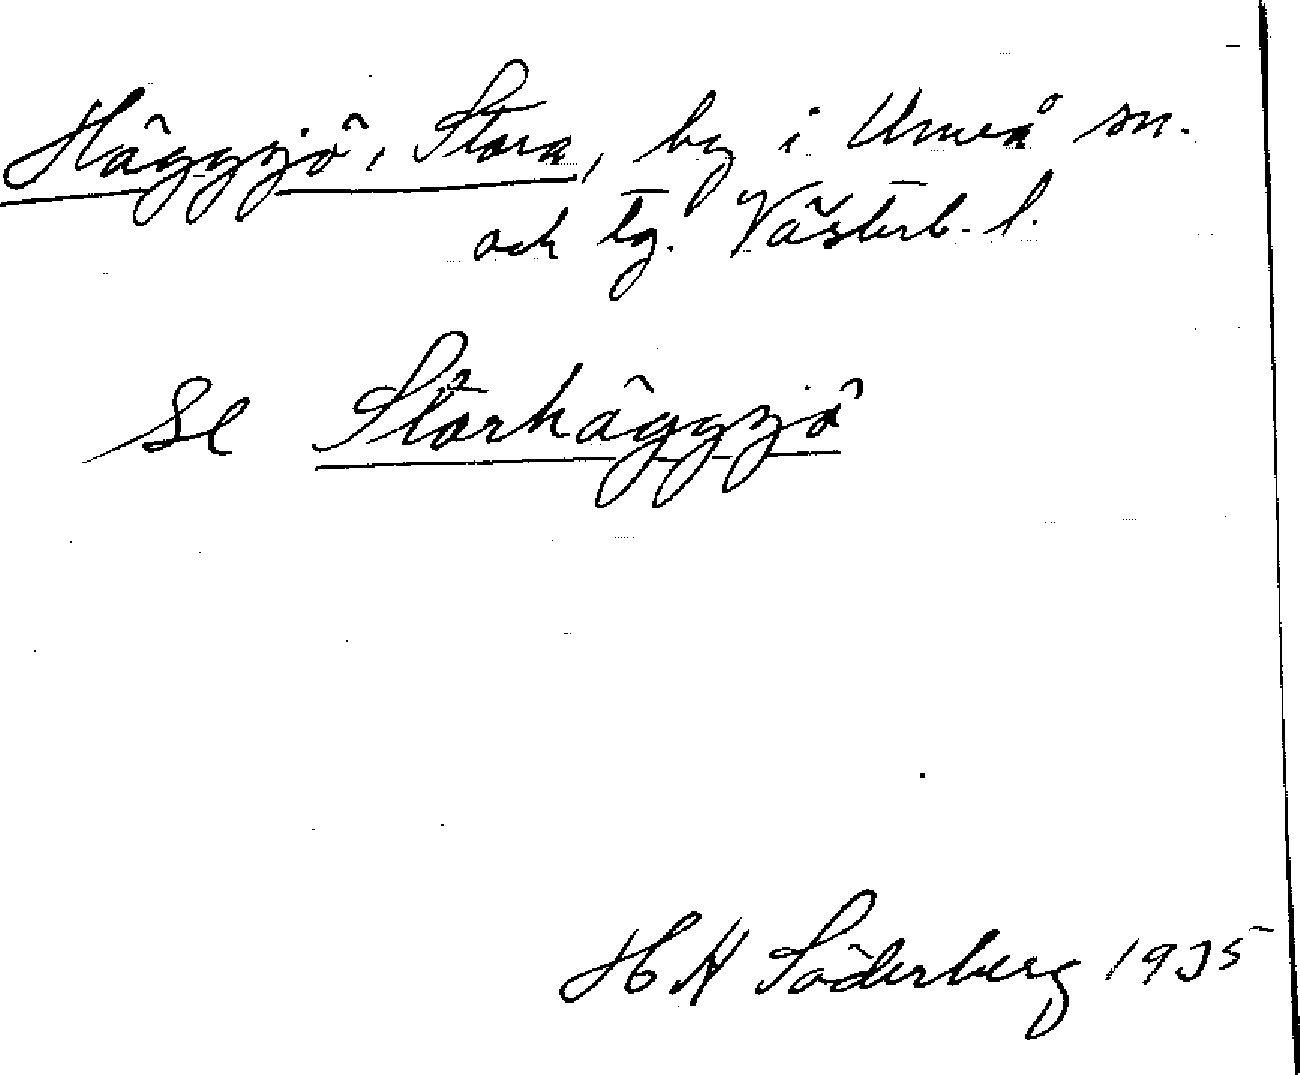 Häggsjö, Stora, by i Umeå sn.
och tg. Västerb. l.
Se Storhäggsjö
H H Söderberg 1935